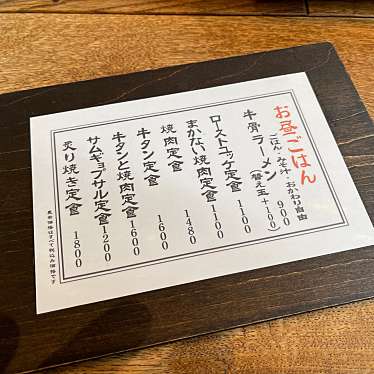 お昼ごはん
ごはん・みそ汁・おかわり自由
牛骨ラーメン(替え玉+100) 900
ローストユッケ定食 1100
まかない焼肉定食 1100
焼肉定食 1480
牛タン定食 1600
牛タンと焼肉定食 1600
サムギョプサル定食 1200
炙り焼き定食 1800
価格はすべて税込み価格です